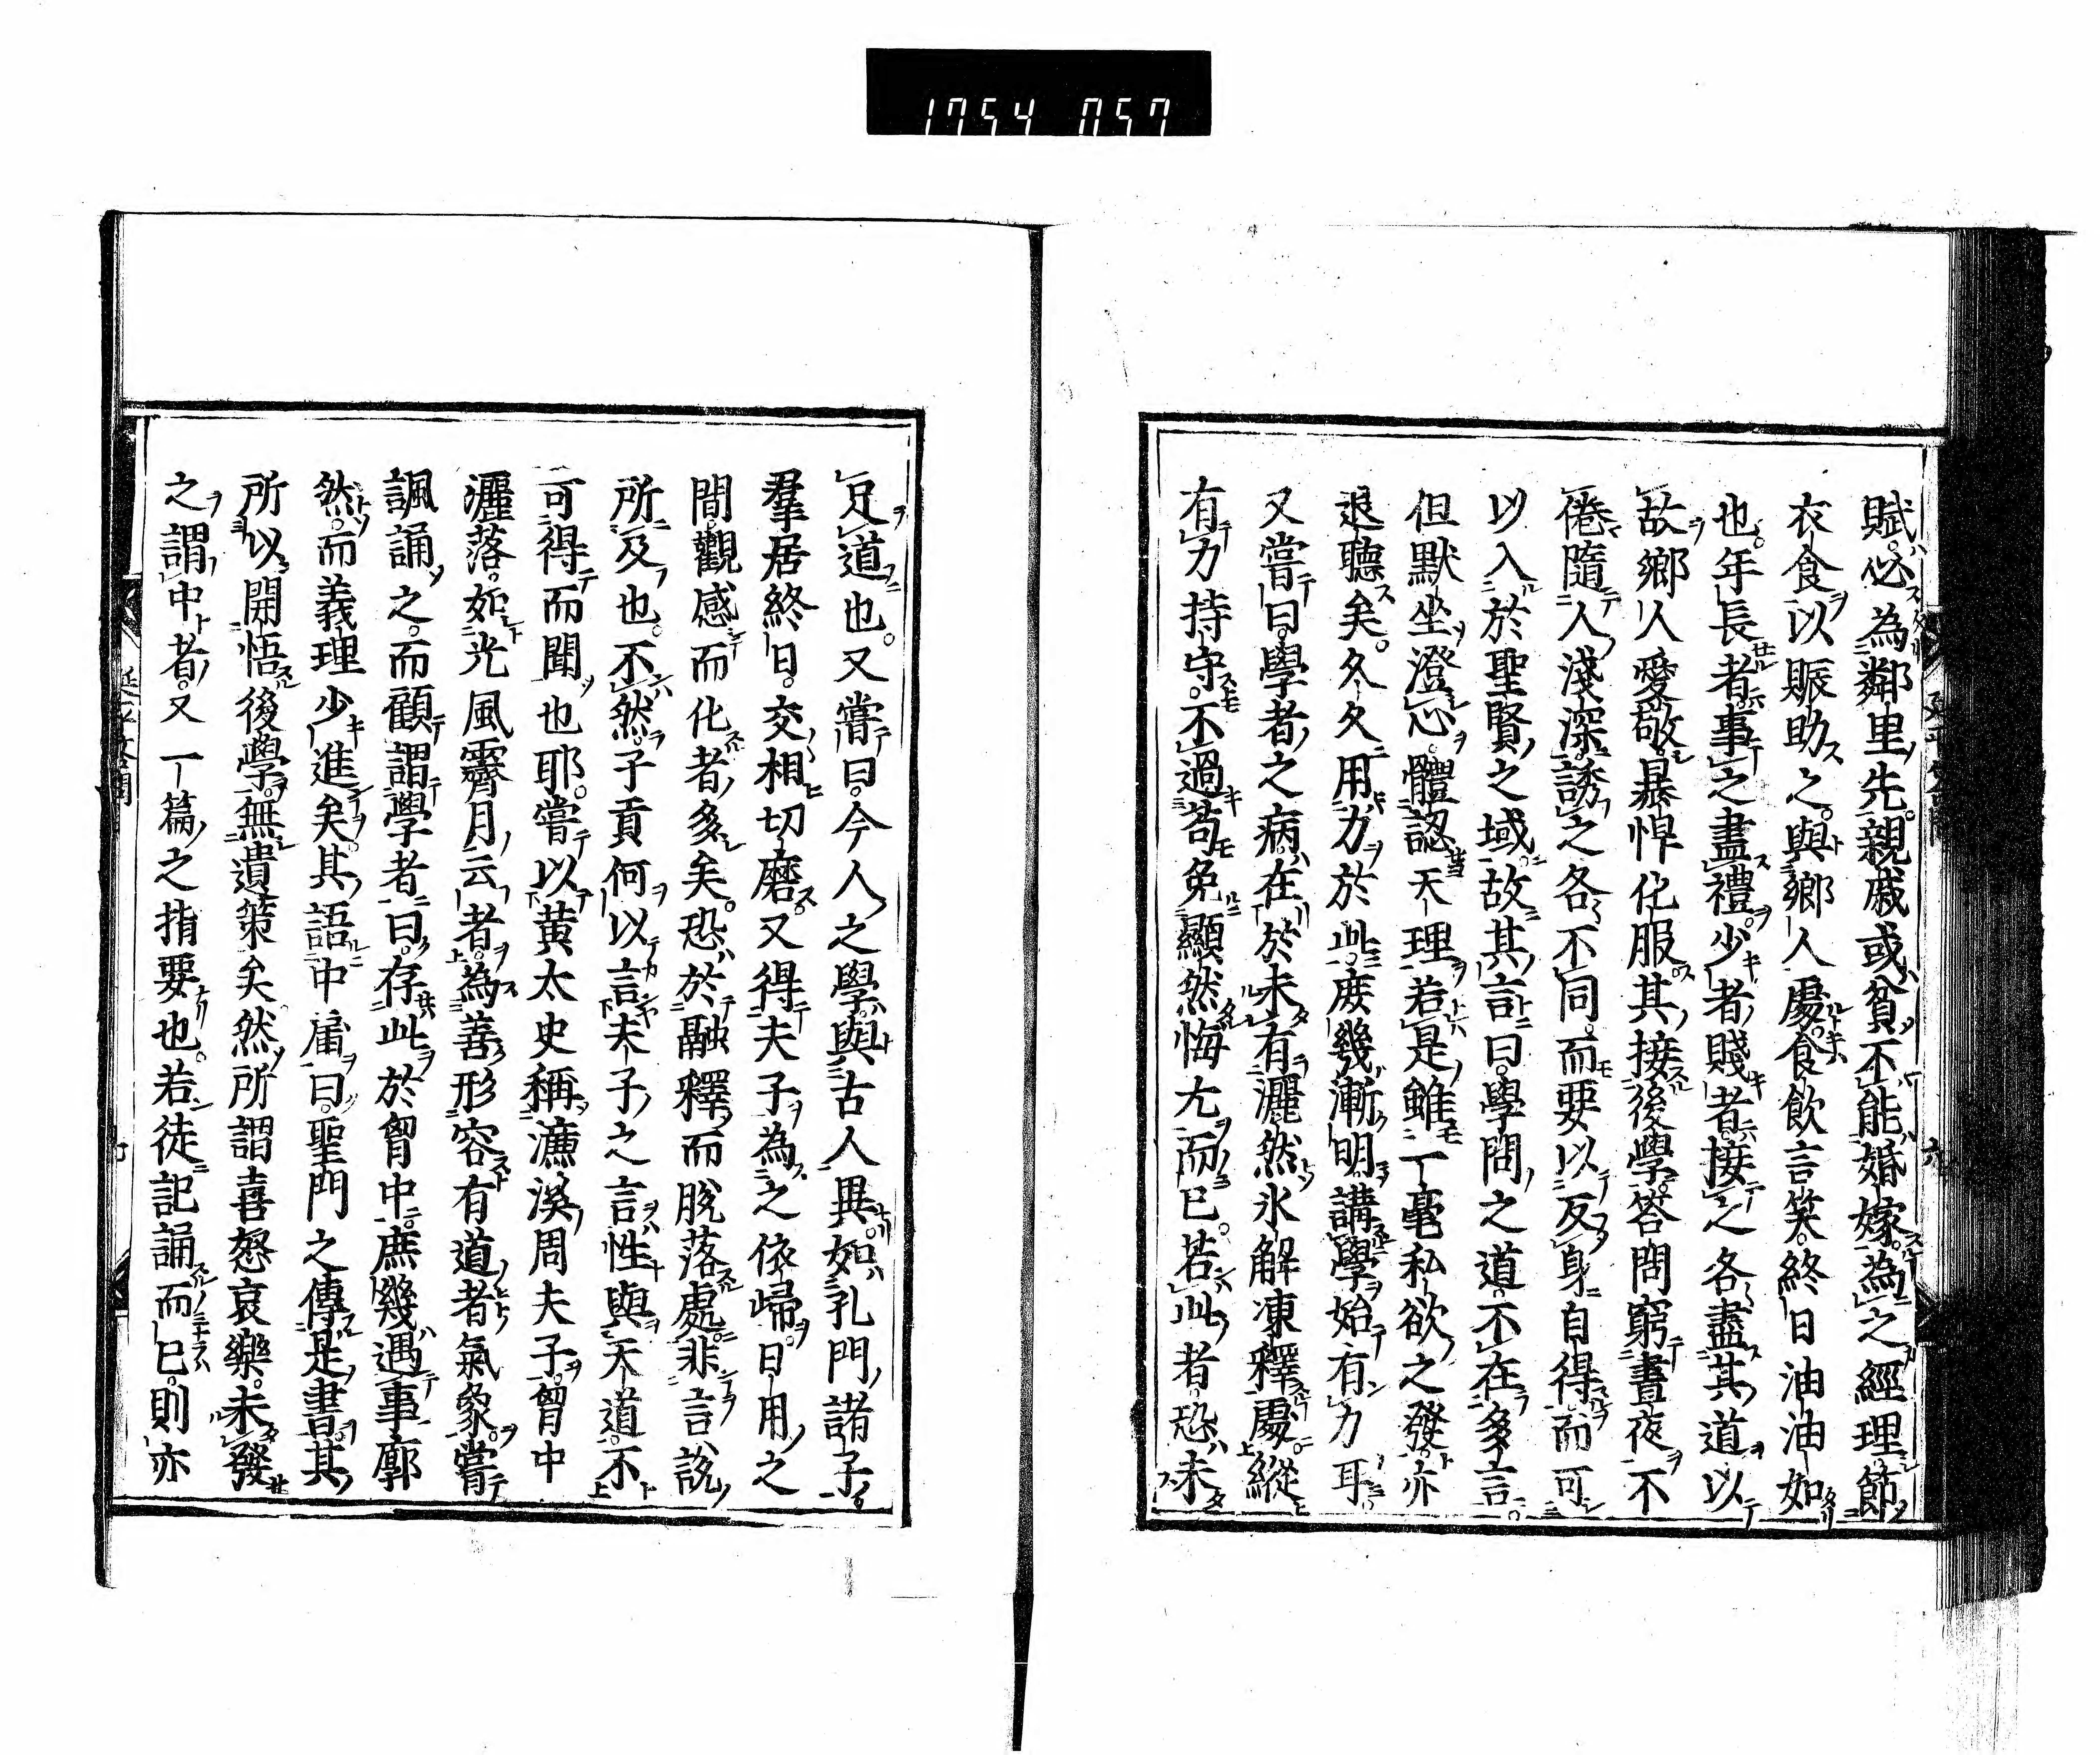 1754 057
賦必為鄰里先親戚或貧不能婚嫁為之經理節
衣食以賑助之與鄉人處食飲言笑終日油油如
也年長者事之盡禮少者賤者接之各盡其道以
故鄉人愛敬暴悍化服其接後學答問窮晝夜不
倦隨人淺深誘之各不同而要以反身自得而可
以入於聖賢之域故其言曰學問之道不在多言
但默坐澄心體認天理若是雖一毫私欲之發亦
退聽矣久久用力於此庶幾漸明講學始有力耳
又嘗曰學者之病在於未有灑然氷解凍釋處縱
有力持守不過苟免顯然悔尤而已若此者恐未
足道也又嘗曰今人之學與古人異如孔門諸子
羣居終日交相切磨又得夫子為之依歸日用之
間觀感而化者多矣恐於融釋而脫落處非言說
所及也不然子貢何以言夫子之言性與天道不
可得而聞也耶嘗以黃太史稱濂溪周夫子胷中
灑落如光風霽月云者為善形容有道者氣象嘗
諷誦之而顧謂學者曰存此於胷中庶幾遇事廓
然而義理少進矣其語中庸曰聖門之傳是書其
所以開悟後學無遺策矣然所謂喜怒哀樂未發
之謂中者又一篇之指要也若徒記誦而已則亦